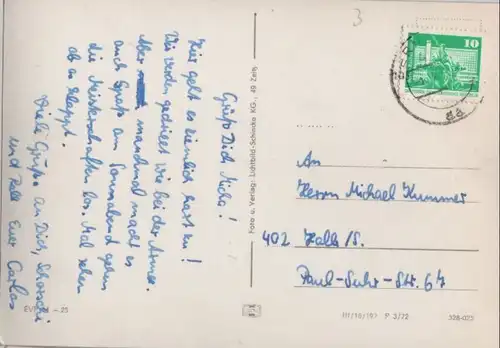 Grüß Dich Micha!
Hier geht es ziemlich hart zu!
Wir werden gedrillt wie bei der Armee.
Aber manchmal macht es
auch Spaß am Sonnabend gehen
die Meisterschaften los. Mal sehen
ob es klappt.
Viele Grüße an Dich,
und Rolf Euer Carlos
Foto u. Verlag: Lichtbild-Schincke KG., 49 Zeitz
3
10
An
Herrn Michael Kummer
402 Halle/S.
Paul-Suhr-Str. 67
III/18/197 P 3/72
528-025